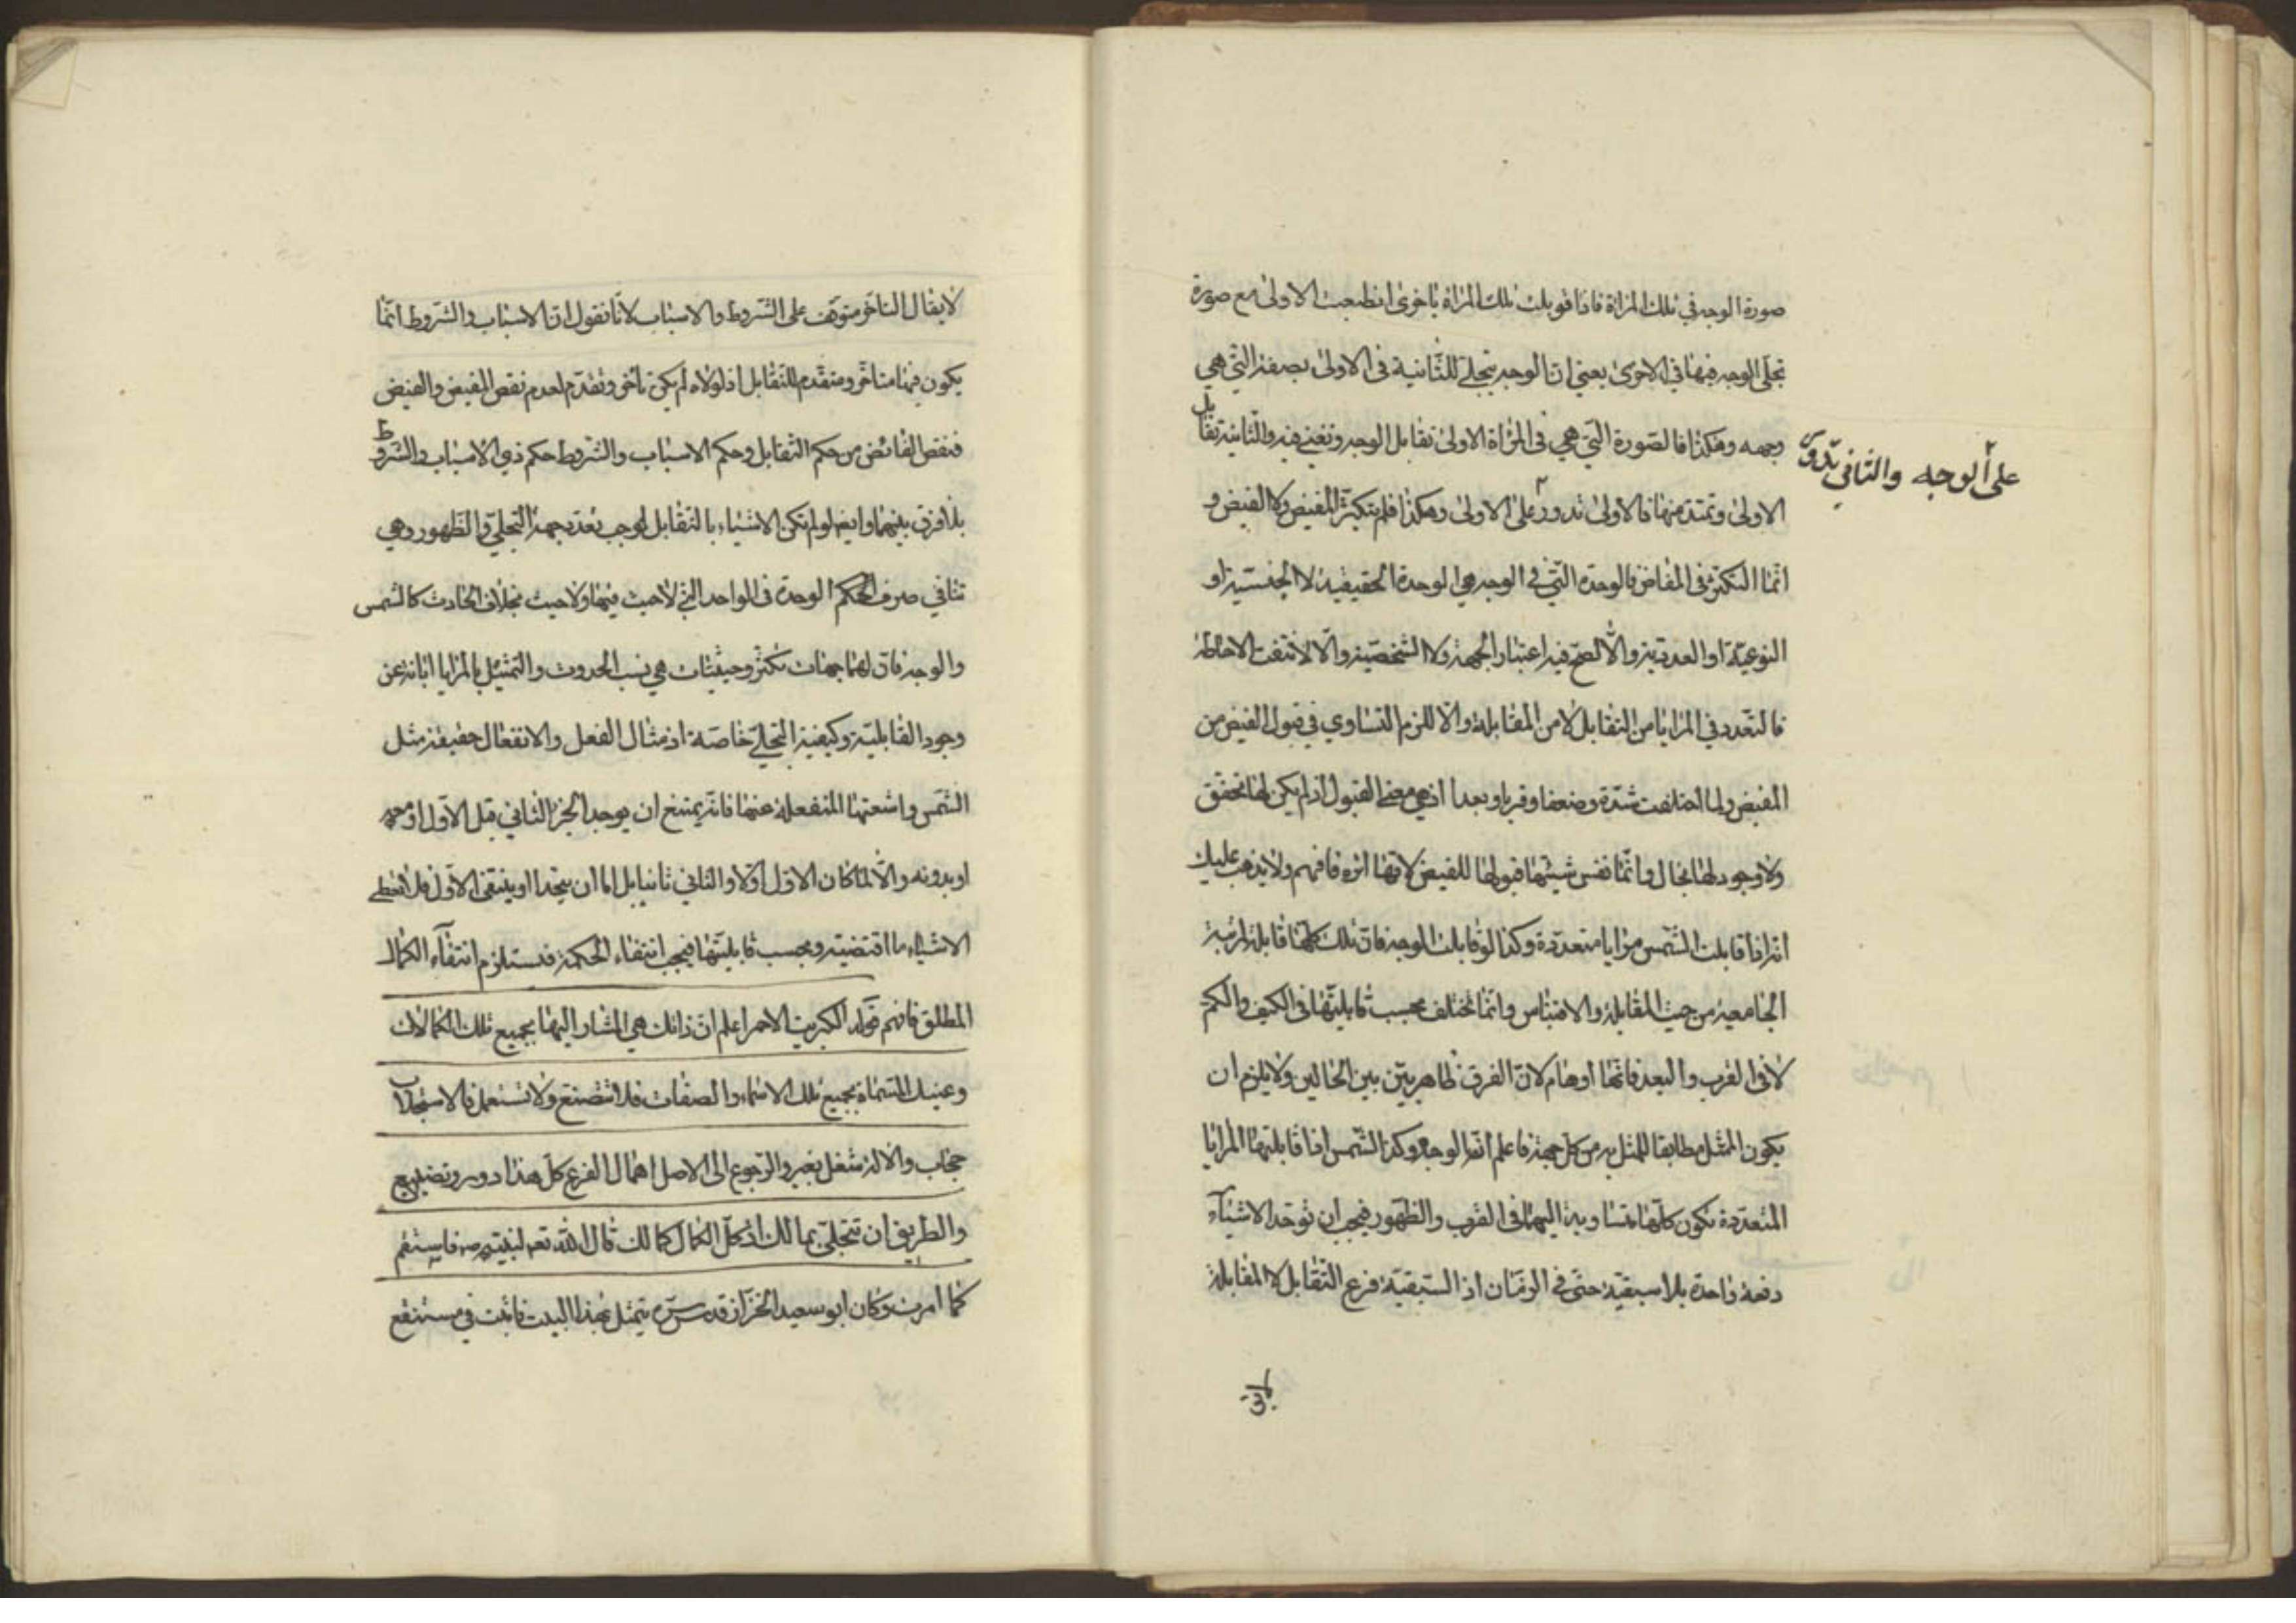 صورة الوجه في تلك المرآة فاذا قوبلت تلك المرآة باخرى انطبعت الاولى مع صورة
تجلى الوجه فيها في الاخرى يعني ان الوجه يتجلى للثانية في الاولى بصفته التي هي
وجهه وهكذا فالصورة التي هي في المرآة الاولى تقابل الوجه وتغني فيه والثانية تقابل
على الوجه والثاني تدور
الاولى وتمتد منها فالاولى تدور على الاولى وهكذا فلم يتكثر المفيض ولا الفيض و
انما التكثر في المفاض فالوحدة التي في الوجه هي الوحدة الحقيقية لا الجنسية او
النوعية او العددية والا لصح فيه اعتبار الجهة ولا الشخصية والا لانتفت الاحاطة
فالتعدد في المرايا من التقابل لا من المقابلة والا للزم التساوي في قبول الفيض من
المفيض ولما اختلفت شدة وضعفا وقربا وبعدا اذ هي معنى القبول اذ لم يكن لها تحقق
ولا وجود لها بحال وانما نفس شيئيتها قبولها للفيض لانها اثره فافهم ولا يذهب عليك
انه اذا قابلت الشمس مرايا متعددة وكذا لو قابلت الوجه فان تلك كلها قابلة لمرتبة
الجامعية من حيث المقابلة والاقتباس وانما تختلف بحسب قابليتها في الكيف والكم
لا في القرب والبعد فانها اوهام لان الفرق ظاهر بين بين الحالين ولا يلزم ان
يكون المثل مطابقا للمثل به من كل جهة فاعلم انه الوجه وكذا الشمس اذا قابلتها المرايا
المتعددة تكون كلها متساوية اليها في القرب والظهور فيجب ان توجد الاشياء
دفعة واحدة بلا اسبقية حتى في الزمان اذ السبقية فرع التقابل لا المقابلة
لا يق
لا يقال التاخر متوقف على الشروط والاسباب لانا نقول ان الاسباب والشروط انما
يكون فيها متاخر ومتقدم للتقابل اذ لولاه لم يكن تأخر وتقدم لعدم نقص المفيض والفيض
فنقص الفائض من حكم التقابل وحكم الاسباب والشروط حكم ذي الاسباب والشروط
بلا فرق بينهما وايضا لو لم تكن الاشياء بالتقابل لوجب تعدد جهة التجلي والظهور وهي
تنافي صرف الحكم الوحدة في الواحد التي لا حيث فيها ولا حيث بخلاف الحادث كالشمس
والوجه فان لهما جهات تكثر وحيثيات هي نسب الحدوث والتمثيل بالمرايا ابانة عن
وجود القابلية وكيفية التجلي خاصة اذ مثال الفعل والانفعال حقيقة مثل
الشمس واشعتها المنفعلة عنها فانه يمتنع ان يوجد الجزء الثاني قبل الاول او معه
او بدونه والا لما كان الاول اولا والثاني ثانيا بل اما ان يتحدا او ينتفي الاول فلا تعطى
الاشياء ما اقتضيته وبحسب قابليتها فيجب انتفاء الحكمة فتستلزم انتفاء الكمال
المطلق فافهم قوله الكبريت الاحمر اعلم ان ذاتك هي المشار اليها بجميع تلك الكمالات
وعينك المسماة بجميع تلك الاسماء والصفات فلا تتصنع ولا تستعمل فالاستجلاب
حجاب والآلة شغل بغير والرجوع الى الاصل اهمال الفرع كل هذا دور وتضييع
والطريق ان تتجلى بما لك اذ كل الكمال كمالك قال الله تعه لنبيه صه فاستقم
كما امرت وكان ابو سعيد الخزاز قدس سره يتمثل بهذا البيت فاثبت في مستنقع